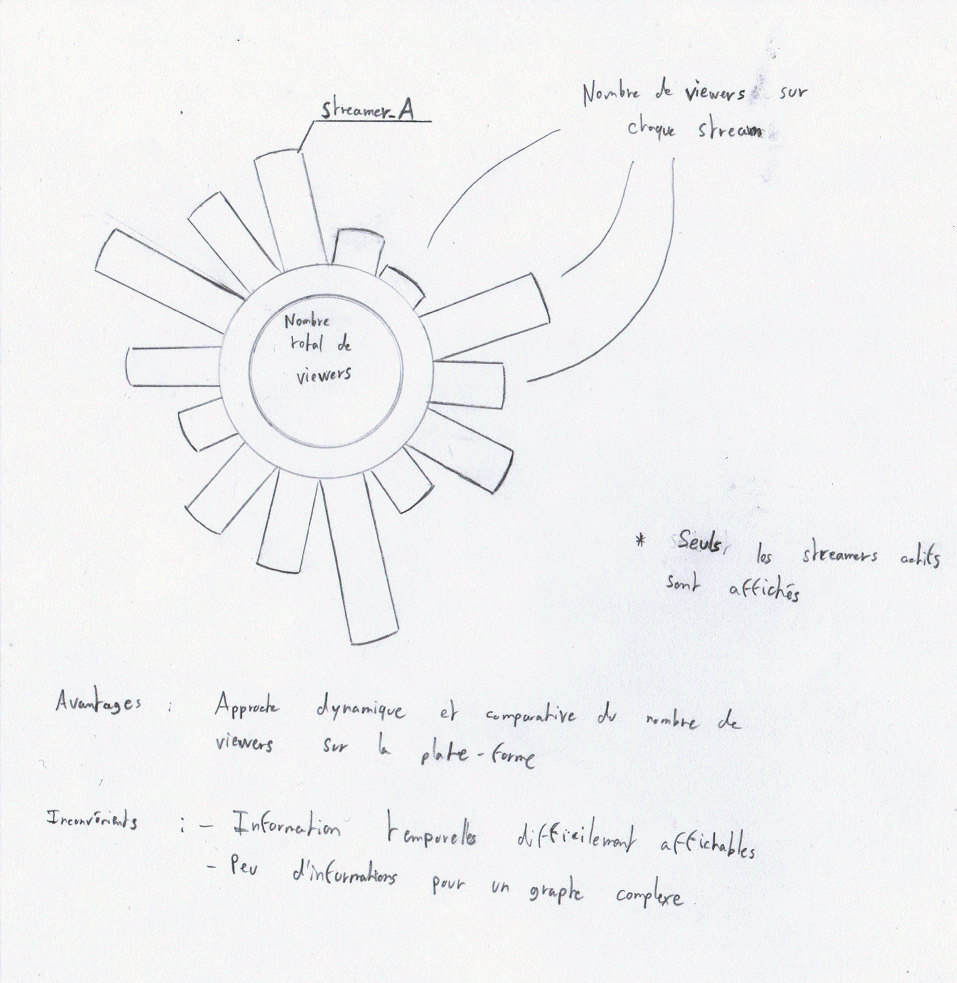 streamer_A
Nombre de viewers sur
chaque stream
Nombre
total de
viewers
* Seuls, les streamers actifs
sont affichés
Avantages : Approche dynamique et comparative du nombre de
viewers sur la plate-forme
Inconvénients : - Information temporelles difficilement affichables
- Peu d'informations pour un graphe complexe.